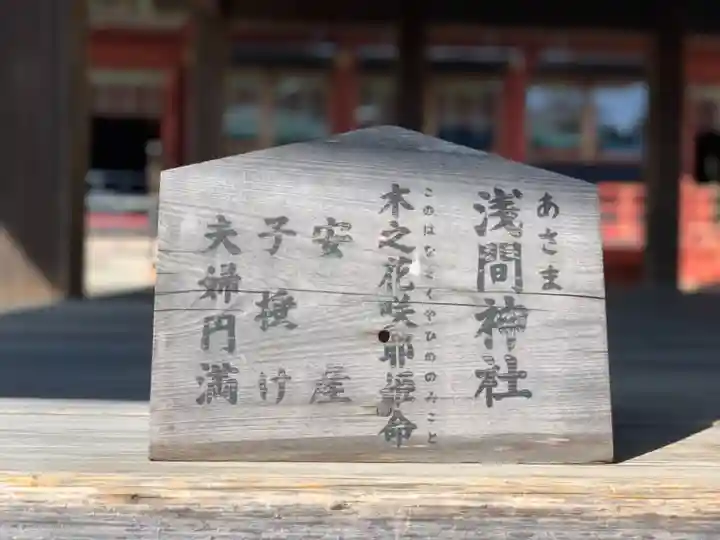 あさま
浅間神社
このはなさくやひめのみこと
木之花咲耶姫命
安産
子授け
夫婦円満